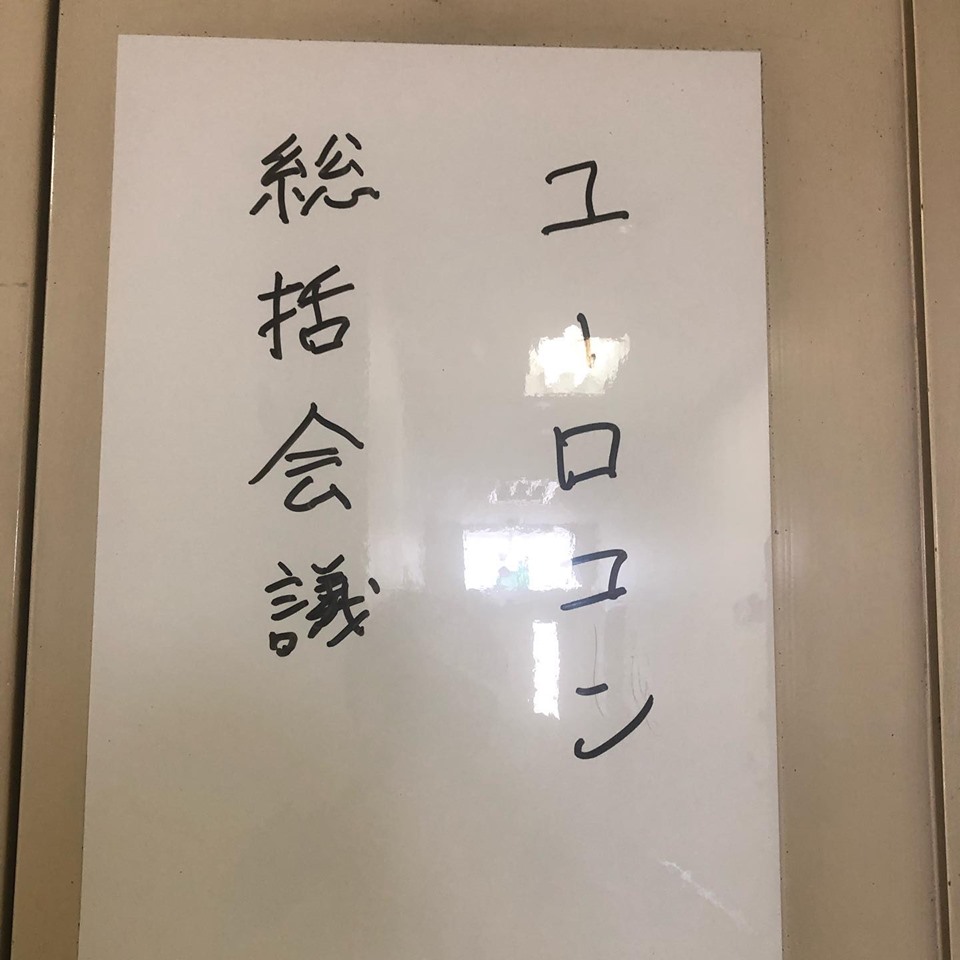 ユーロコン
総括会議